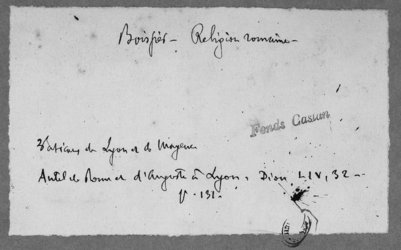 Boissier - Religion romaine -
Fonds Castan
de Lyon et de Mayence
Autel de Rome et d'Auguste à Lyon, Dion LIV, 32 -
p. 131.